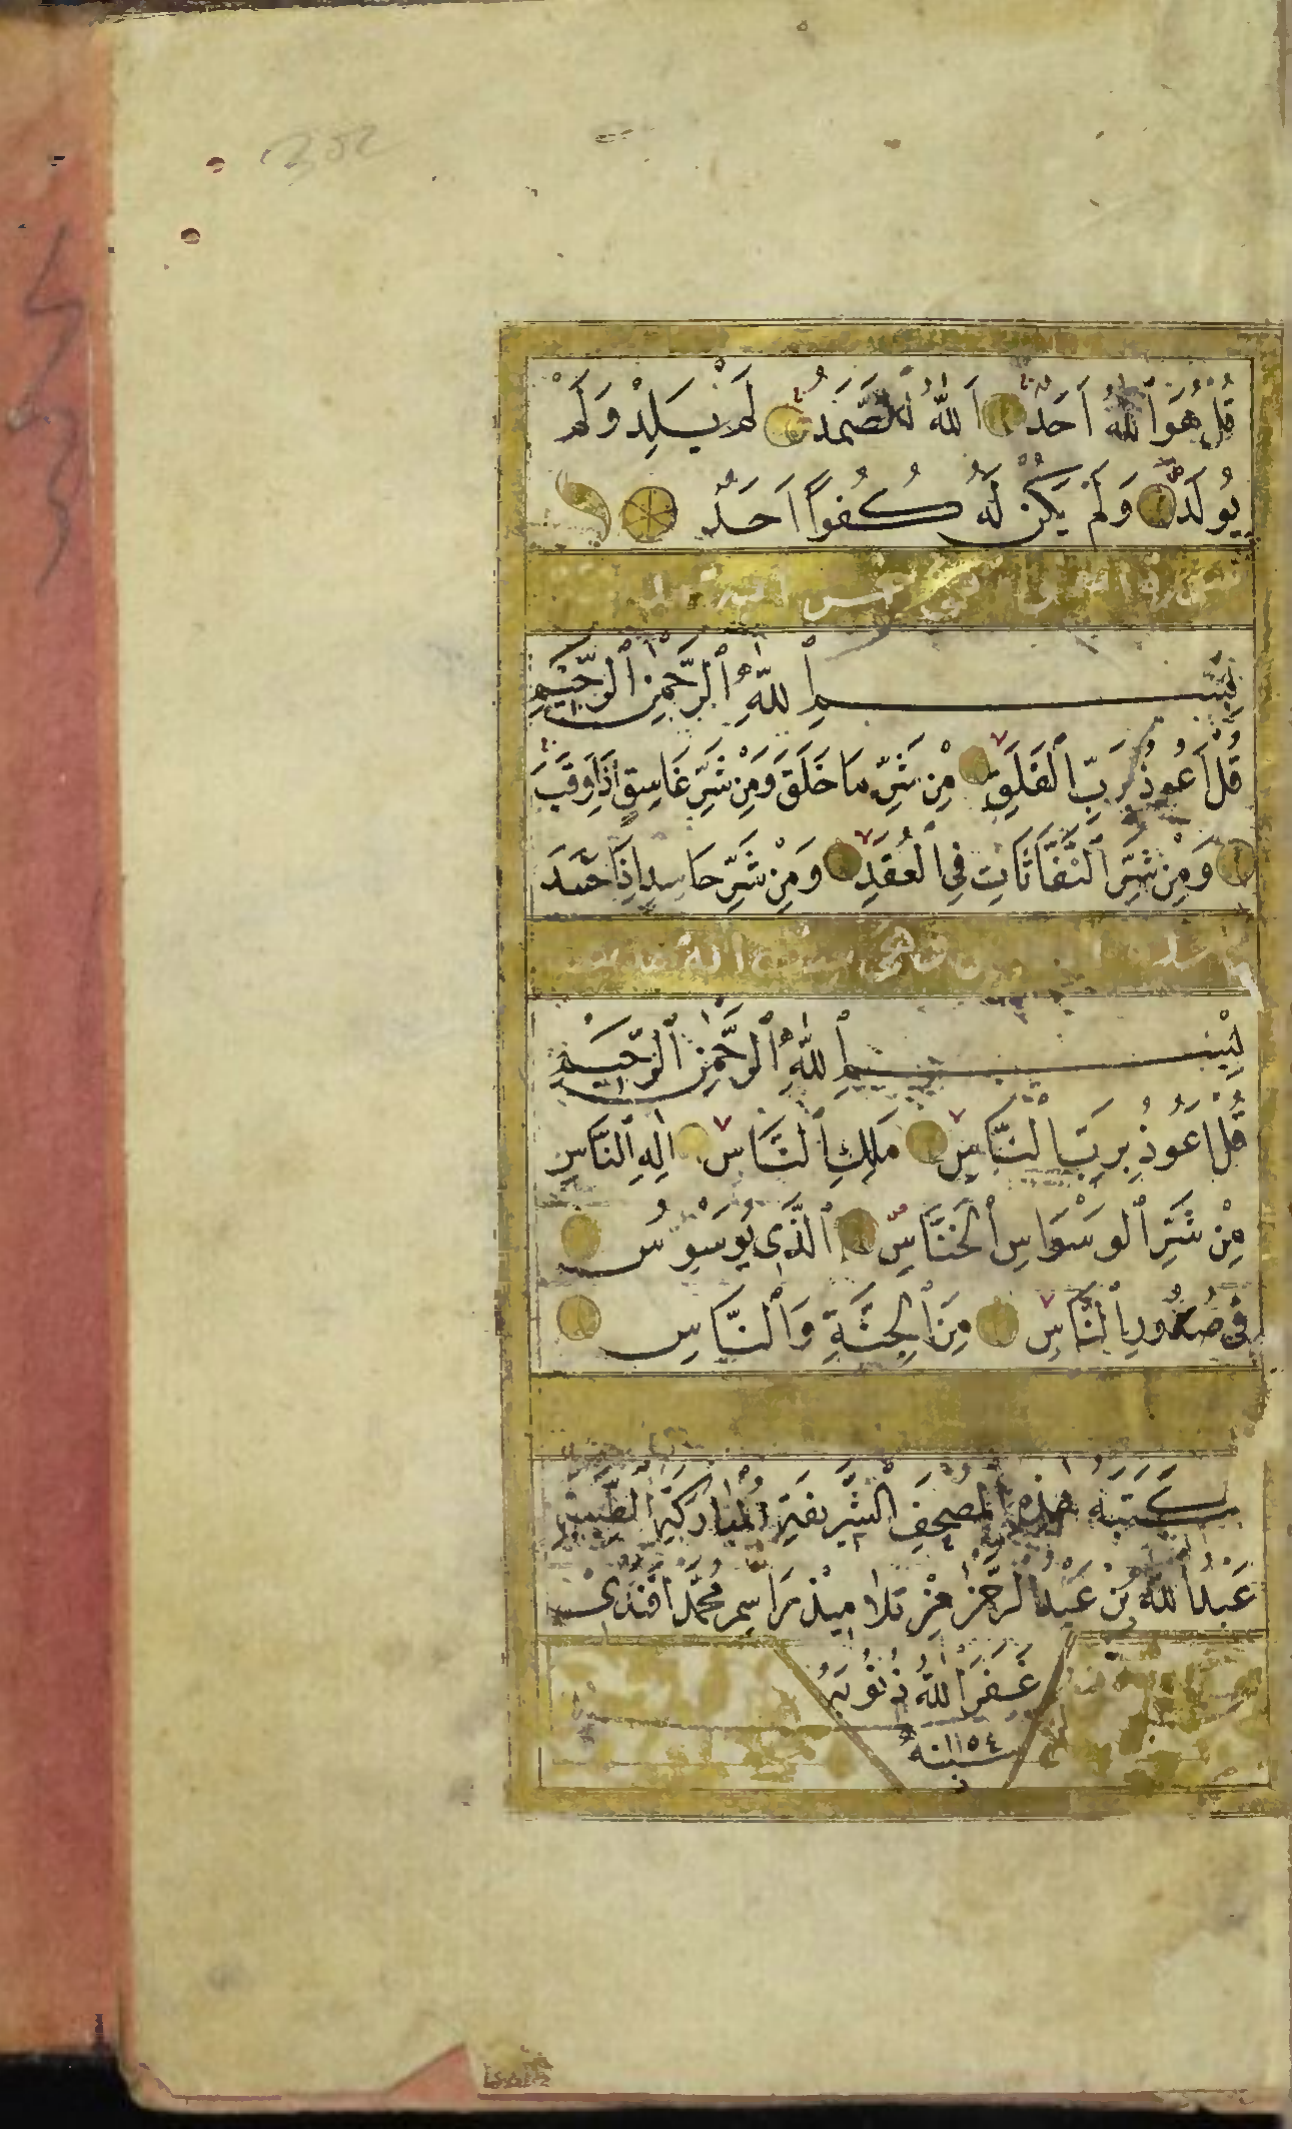 قُلْ هُوَ ٱللَّهُ اَحَدٌ اَللَّهُ ٱلصَّمَدُ لَمْ يَلِدْ وَلَمْ
يُولَدْ وَلَمْ يَكُنْ لَهُ كُفُواً اَحَدٌ
بِسْمِ ٱللَّهِ ٱلرَّحْمٰنِ ٱلرَّحِيمِ
قُلْ اَعُوذُ بِرَبِّ ٱلْفَلَقِ مِنْ شَرِّ مَا خَلَقَ وَمِنْ شَرِّ غَاسِقٍ اِذَا وَقَبَ
وَمِنْ شَرِّ ٱلنَّفَّاثَاتِ فِي ٱلْعُقَدِ وَمِنْ شَرِّ حَاسِدٍ اِذَا حَسَدَ
بِسْمِ ٱللَّهِ ٱلرَّحْمٰنِ ٱلرَّحِيمِ
قُلْ اَعُوذُ بِرَبِّ ٱلنَّاسِ مَلِكِ ٱلنَّاسِ اِلٰهِ ٱلنَّاسِ
مِنْ شَرِّ ٱلْوَسْوَاسِ ٱلْخَنَّاسِ ٱلَّذِي يُوَسْوِسُ
فِي صُدُورِ ٱلنَّاسِ مِنَ ٱلْجِنَّةِ وَٱلنَّاسِ
كَتَبَهُ هٰذِهِ ٱلْمُصْحَفِ ٱلشَّرِيفَةِ ٱلْمُبَارَكَةِ
عَبْدُ ٱللَّه بْنُ عَبْدُ ٱلرَّحْمٰن مِنْ تلاميذ رَاسِم مُحَمَّدْ اَفَنْدِى
غَفَرَ ٱللَّهُ ذُنُوبَهُ
سنه ١١٥٤